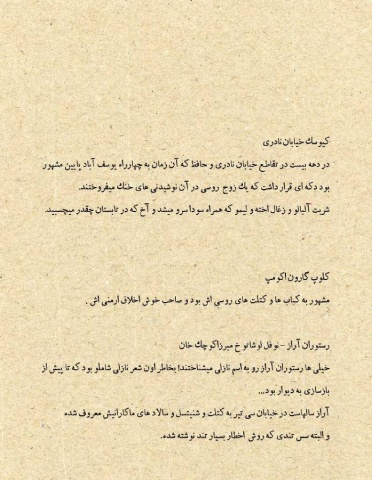 کیوسک خیابان نادری
در دهه بیست در تقاطع خیابان نادری و حافظ که آن زمان به چهارراه یوسف آباد پایین مشهور
بود دکه ای قرار داشت که یک زوج روسی در آن نوشیدنی های خنک میفروختند.
شربت آلبالو و زغال اخته و لیمو که همراه سودا سرو میشد و آخ که در تابستان چقدر میچسبید.
کلوپ گارون اکومپ
مشهور به کباب ها و کتلت های روسی اش بود و صاحب خوش اخلاق ارمنی اش .
رستوران آراز – نوفل لوشاتو خ میرزاکوچک خان
خیلی ها رستوران آراز رو به اسم نازلی میشناختند! بخاطر اون شعر نازلی شاملو بود که تا پیش از
بازسازی به دیوار بود...
آراز سالهاست در خیابان سی تیر به کتلت و شنیتسل و سالاد های ماکارانیش معروف شده
و البته سس تندی که روش اخطار بسیار تند نوشته شده.